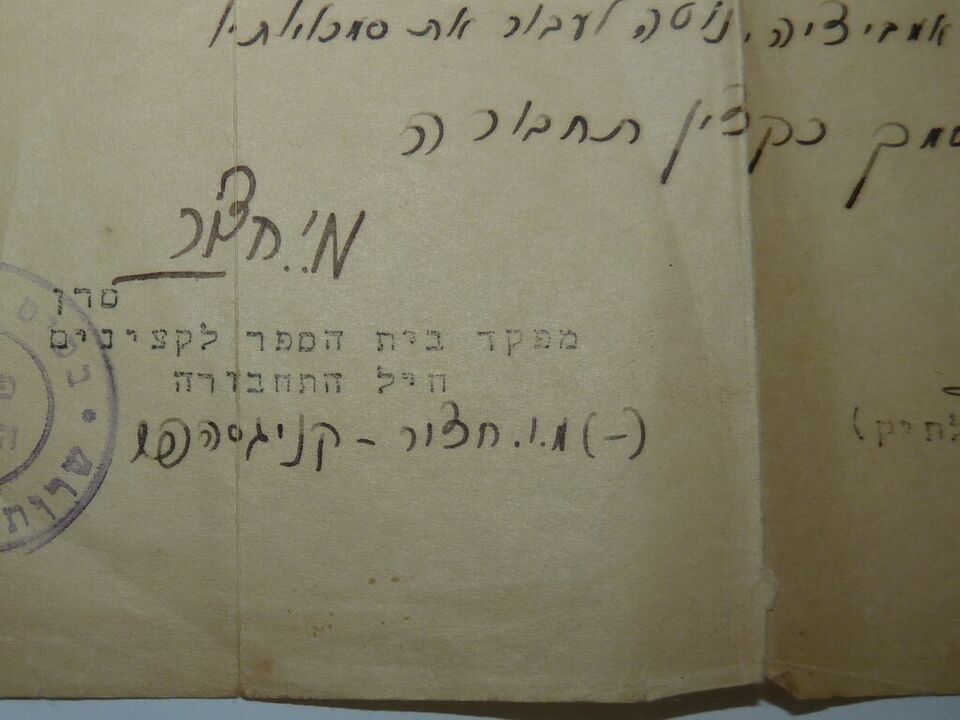 אמביציה, נוטה לעבור את סמכויותיו
כקצין תחבורה
מ.י. חצור
סרן
מפקד בית הספר לקצינים
חיל התחבורה
(-) מ.ו. חצור - קניגסהפט
שרות